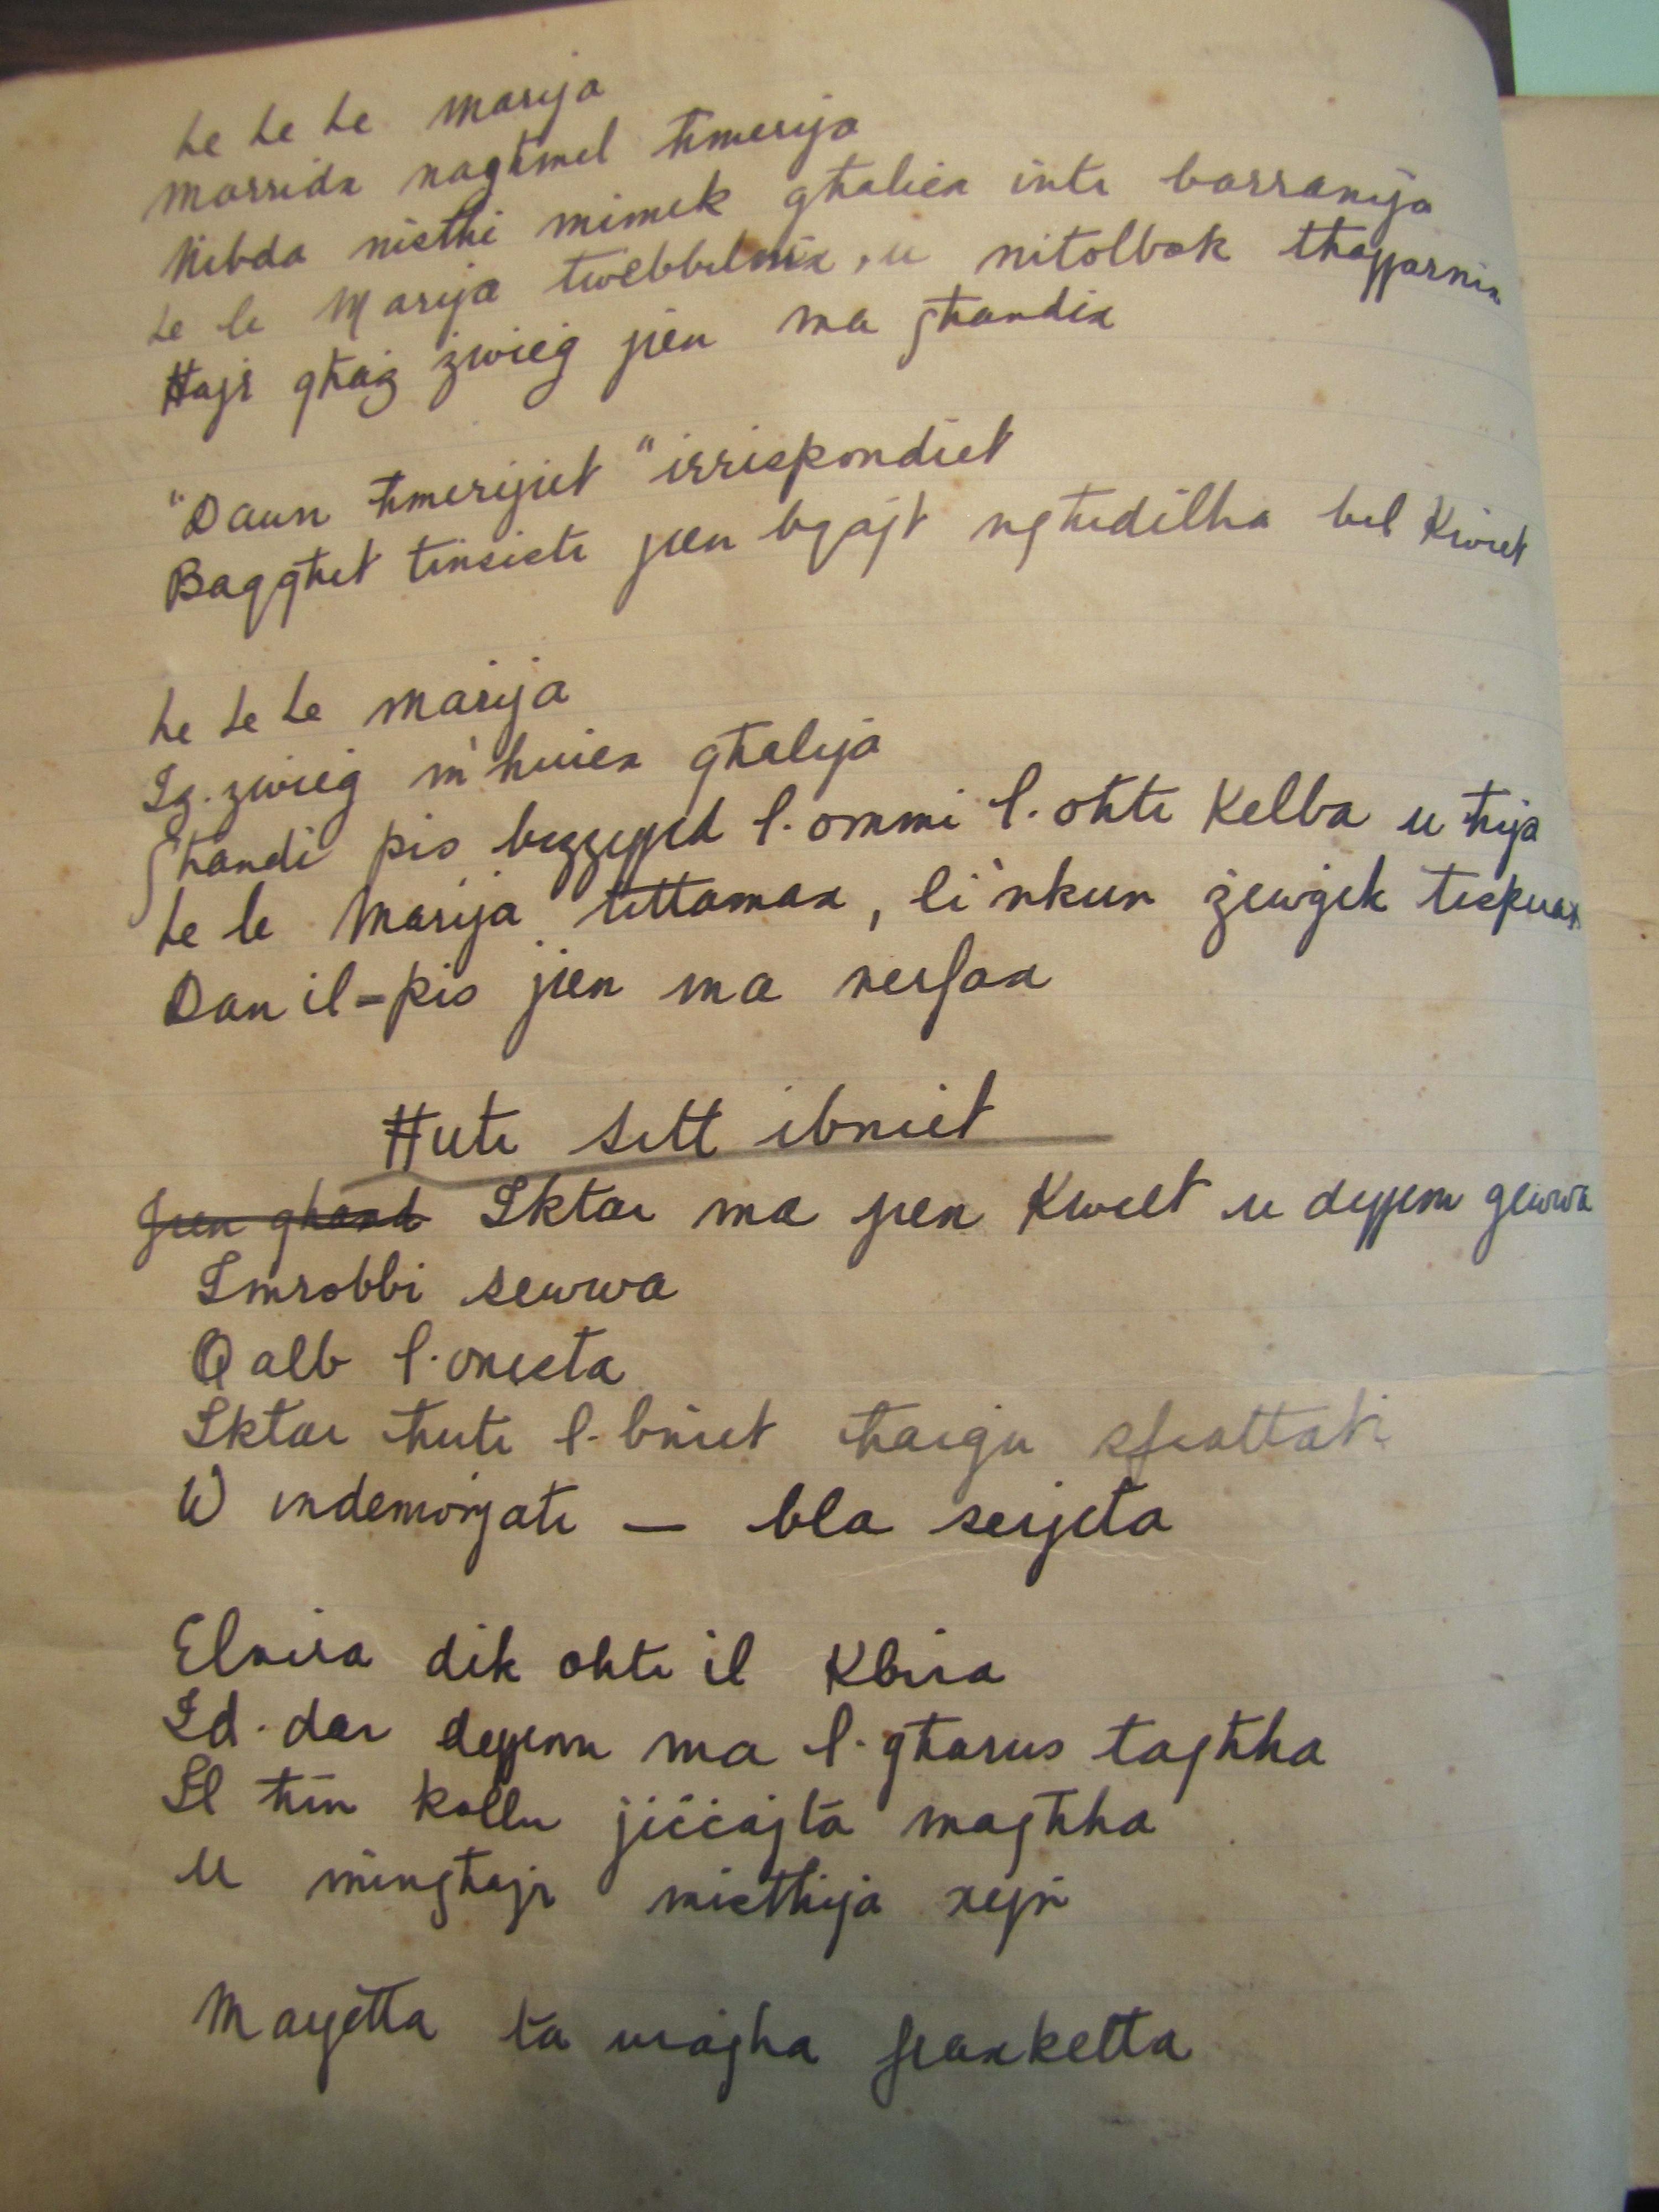 Le Le Le Marija
Marrida nagħmel ħmerija
Nibda nistħi minnek għaliex inti barranija
Le le Marija twebbilnix, u nitolbok tħajjarnix
Ħajr għaż żwieġ jien ma għandix
"Dawn ħmerijiet" irrispondiet
Baqgħet tinsisti jien bqajt ngħidilha bil kwiet
Le Le Le Marija
Iż.żwieġ m'huiex għalija
Għandi pis bizzejjed l.ommi l.oħti kelba u ħija
Le le Marija tittamax, li nkun żewġek tispiax
Dan il-pis jien ma nerfax
Ħuti sitt ibniet
Jien ghand Iktar ma jien kwiet u dejjem ġewwa
Imrobbi sewwa
Qalb l.onesta
Iktar ħuti l.bniet ħarġu sfrattati
W indemonjati — bla serjeta
Elvira dik oħti il kbira
Id.dar dejjem ma l.għarus tagħha
Il ħin kollu jiċċajta magħha
U mingħajr mistħija xejn
Marjetta ta wiċċha franketta